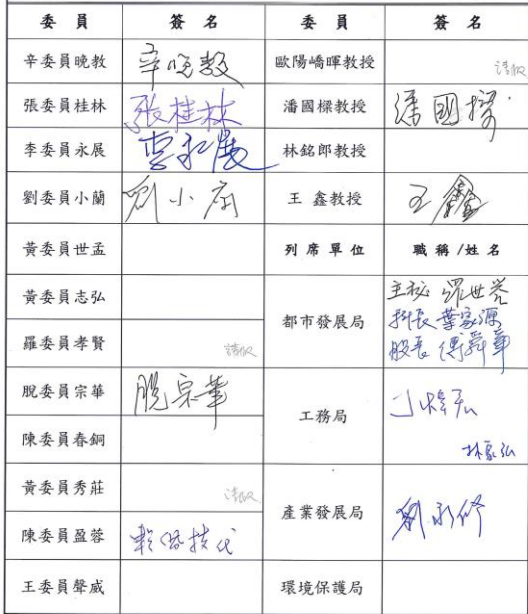 委員 簽名 委員 簽名
辛委員晚教 辛晚教 歐陽嶠暉教授 請假
張委員桂林 張桂林 潘國樑教授 潘國樑
李委員永展 李永展 林銘郎教授
劉委員小蘭 劉小蘭 王鑫教授 王鑫
黃委員世孟 列席單位 職稱/姓名
黃委員志弘 都市發展局 主秘 羅世譽
科長 葉家源
股長 傅舜華
羅委員孝賢 請假
脫委員宗華 脫宗華 工務局
陳委員春銅 林家弘
黃委員秀莊 請假 產業發展局 劉永修
陳委員盈蓉 代
王委員聲威 環境保護局